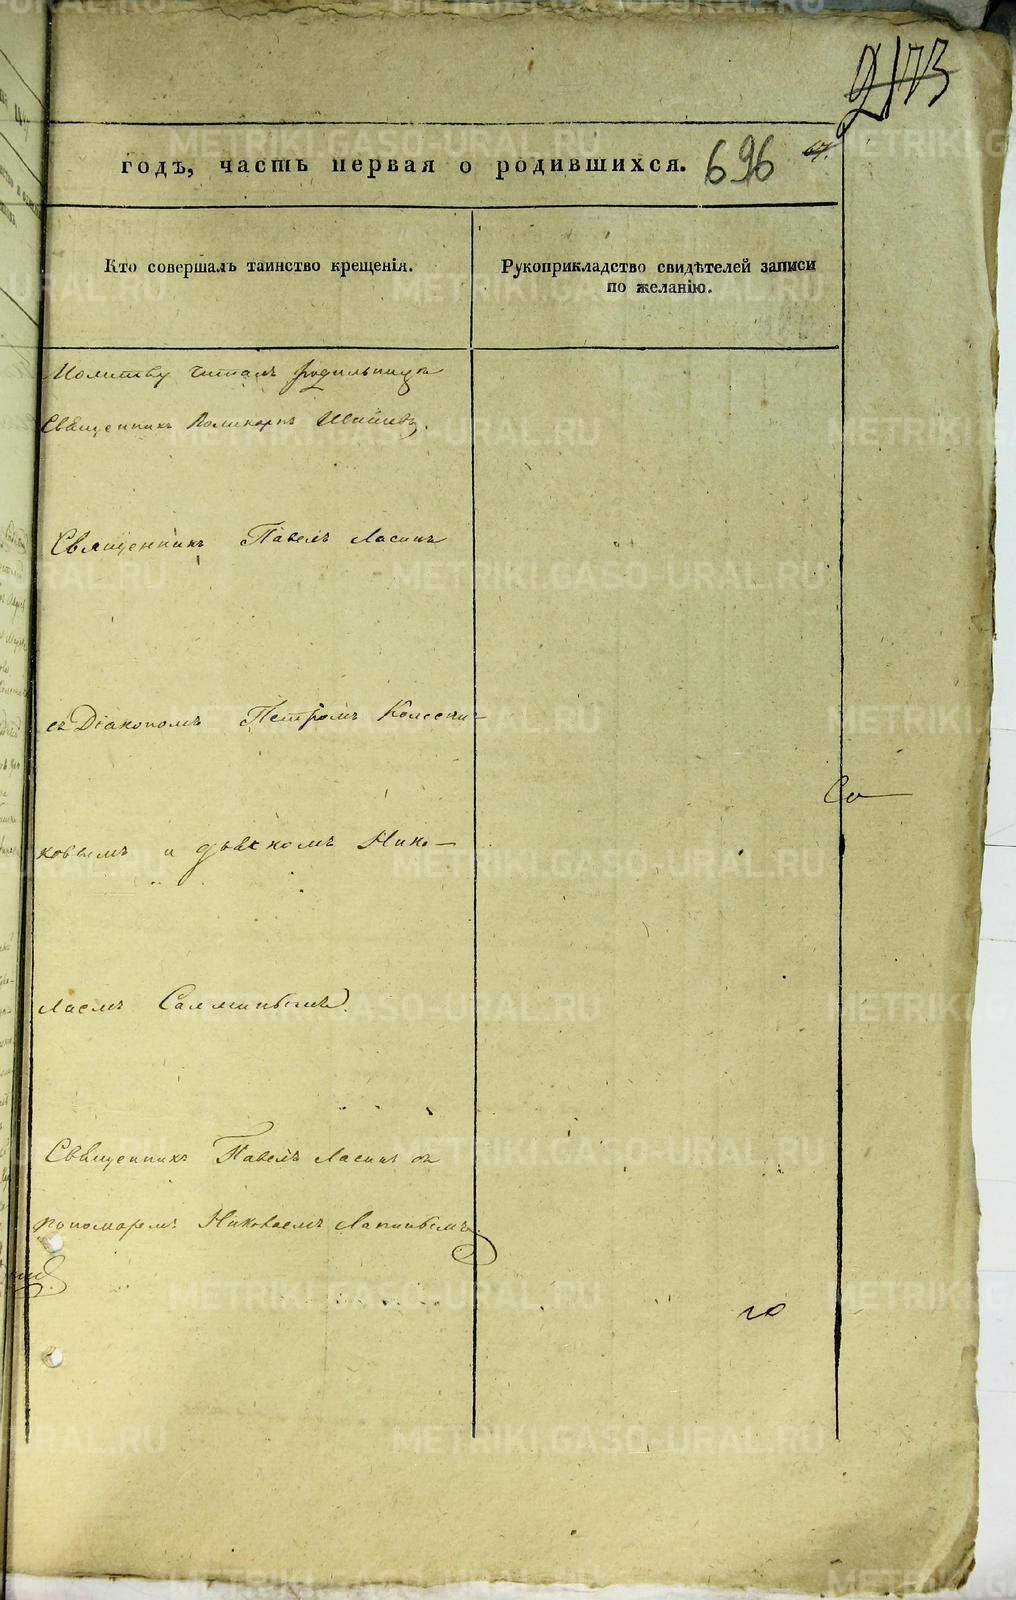 2173
годъ, часть первая о родившихся. 696
Кто совершалъ таинство крещенія.
Рукоприкладство свидѣтелей записи
по желанію.
Молитву читалъ родильницѣ
Священникъ Поликарпъ
Священникъ Павелъ Ласинъ
съ Діакономъ Петромъ Колесни-
Со
ковымъ и дьячкомъ Нико-
лаемъ
Священникъ Павелъ Ласинъ съ
пономаремъ Николаемъ Лапинымъ
го
METRIKI.GASO-URAL.RU